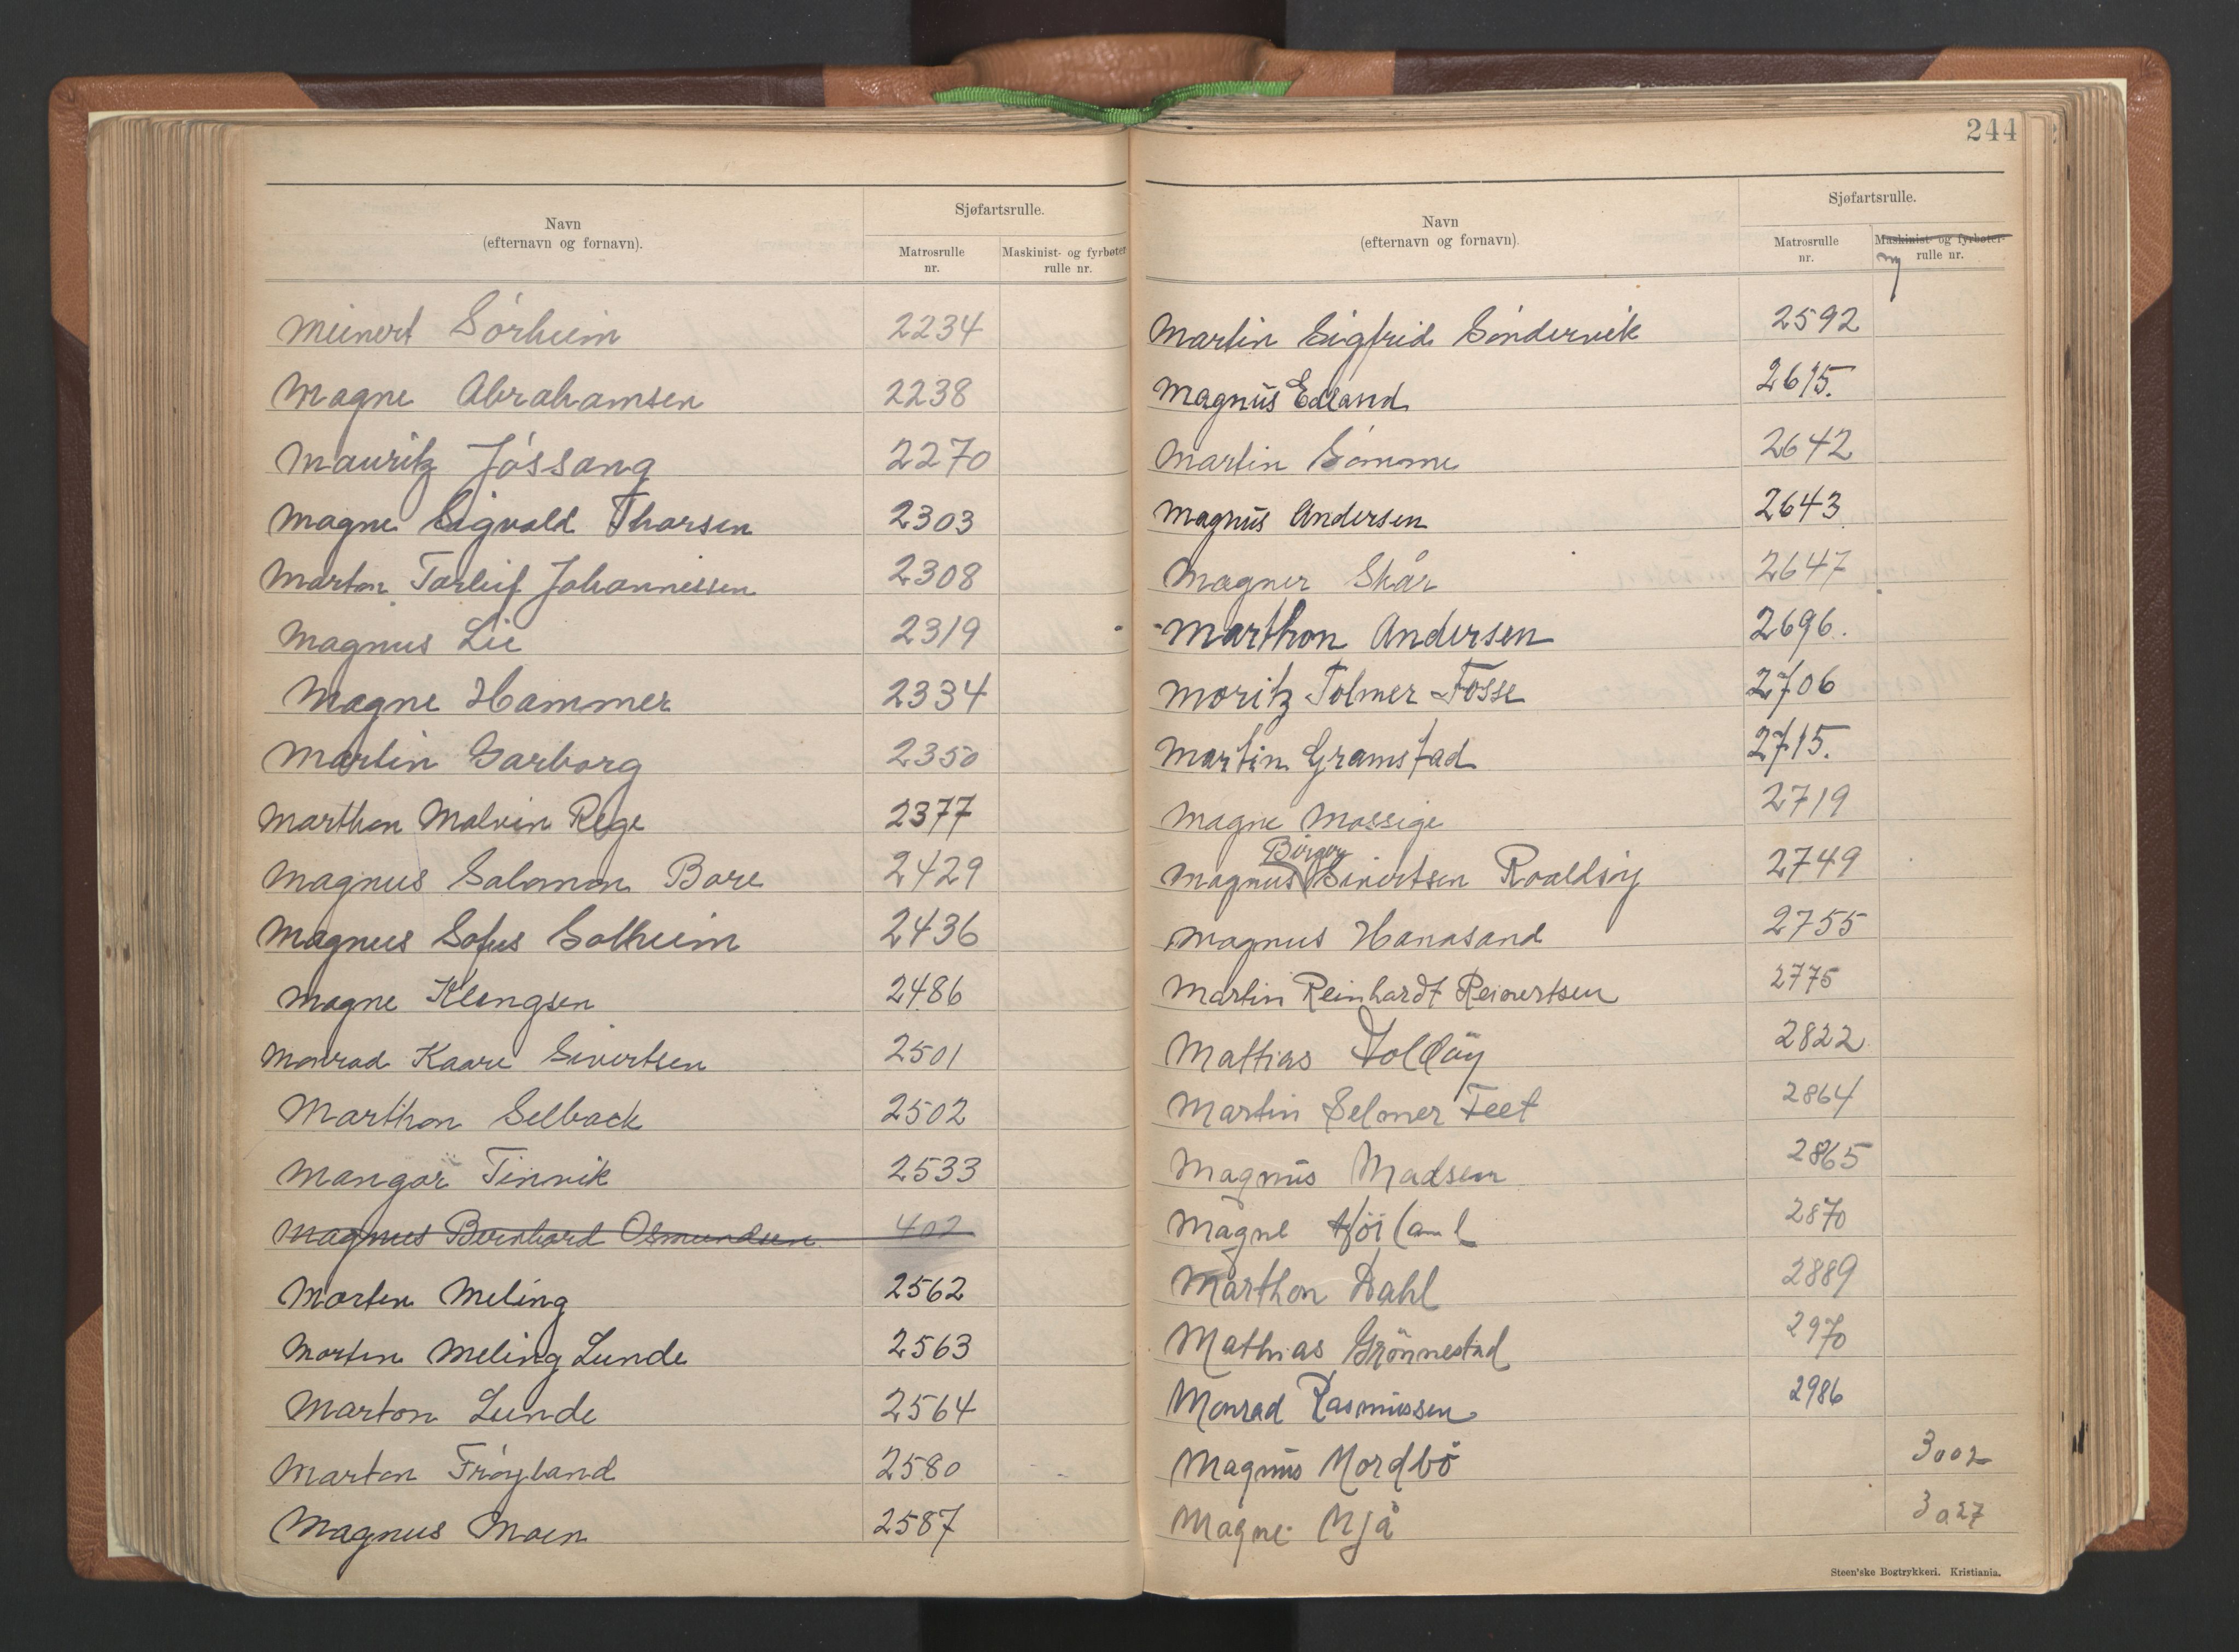 Navn
(efternavn og fornavn).
Sjøfartsrulle.
Matrosrulle nr.
Maskinist- og fyrbøter rulle nr.
Meinert Sörheim 2234
Magne Abrahamsen 2238
Mauritz Jóssang 2270
Magne Sigvald Thorsen 2303
Marton Torleif Johannessen 2308
Magnus Lie 2319
Magne Hammer 2334
Martin Garborg 2350
Marthon Malvin Rege 2377
Magnus Salomon Bore 2429
Magnus Sofus Solheim 2436
Magne Klengsen 2486
Monrad Kaare Sivertsen 2501
Marthon Selback 2502
Mangor Tinnik 2533
Magnus Bernhard Osmundsen 402
Morten Meling 2562
Morten Meling Lunde 2563
Marton Lunde 2564
Marton Fröyland 2580
Magnus Moen 2587
244
Navn
(efternavn og fornavn).
Sjøfartsrulle.
Matrosrulle nr.
Maskinist- og fyrbøter-
ny rulle nr.
Martin Sigfrid Söndervik 2592
Magnus Edland 2615.
Martin Sömme 2642
Magnus Andersen 2643
Magner Skår 2647
Marthon Andersen 2696.
Moritz Tolmer Fosse 2706
Martin Gramstad 2715.
Magne Mossige 2719
Birger
Magnus Sivertsen Roaldsöy 2749
Magnus Hanasand 2755
Martin Reinhardt Reinertsen 2775
Mattias Tollöy 2822
Martin Selmer Feet 2864
Magnus Madsen 2865
Magne Höiland 2870
Marthon Dahl 2889
Mathias Grönnestad 2970
Monrad Rasmussen 2986
Magnus Nordbö 3002
Magne Njå 3027
Steen'ske Bogtrykkeri. Kristiania.